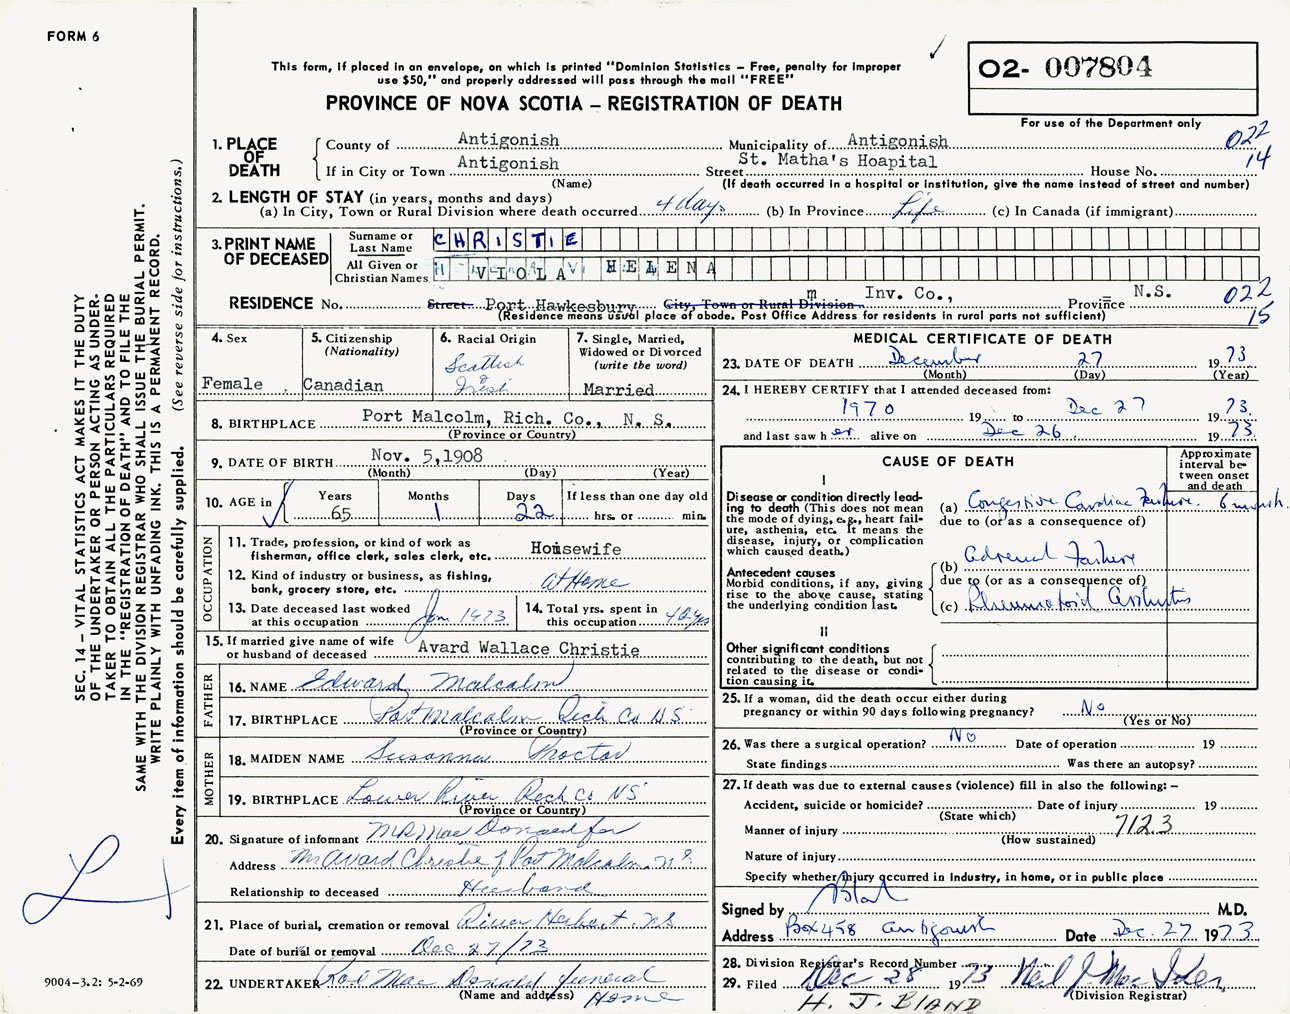 FORM 6
This form, if placed in an envelope, on which is printed "Dominion Statistics – Free, penalty for improper
use $50," and properly addressed will pass through the mail "FREE"
PROVINCE OF NOVA SCOTIA – REGISTRATION OF DEATH
O2- 007804
For use of the Department only
022
14
1. PLACE OF DEATH
County of Antigonish Municipality of Antigonish
If in City or Town Antigonish Street St. Matha's Hoapital House No.
(Name) (If death occurred in a hospital or institution, give the name instead of street and number)
2. LENGTH OF STAY (in years, months and days)
(a) In City, Town or Rural Division where death occurred 4 days (b) In Province Life (c) In Canada (if immigrant)
3. PRINT NAME OF DECEASED
Surname or Last Name CHRISTIE
All Given or Christian Names VIOLA HELENA
RESIDENCE No. Street Port Hawkesbury City, Town or Rural Division m Inv. Co., Province N.S.
(Residence means usual place of abode. Post Office Address for residents in rural parts not sufficient)
022
15
4. Sex
Female
5. Citizenship
(Nationality)
Canadian
6. Racial Origin
Scottish
&
Irish
7. Single, Married,
Widowed or Divorced
(write the word)
Married
8. BIRTHPLACE Port Malcolm, Rich. Co., N. S.
(Province or Country)
9. DATE OF BIRTH Nov. 5,1908
(Month) (Day) (Year)
10. AGE in Years 65 Months 1 Days 22 If less than one day old
hrs. or min.
OCCUPATION
11. Trade, profession, or kind of work as
fisherman, office clerk, sales clerk, etc. Housewife
12. Kind of industry or business, as fishing,
bank, grocery store, etc. at Home
13. Date deceased last worked
at this occupation Jan 1973
14. Total yrs. spent in
this occupation
15. If married give name of wife
or husband of deceased Avard Wallace Christie
FATHER
16. NAME Edward Malcolm
17. BIRTHPLACE Port Malcolm Rich Co NS
(Province or Country)
MOTHER
18. MAIDEN NAME Susanna Proctor
19. BIRTHPLACE Lower River Rich Co NS
(Province or Country)
20. Signature of informant MR Mac Donald for
Address Mr Avard Christie Port Malcolm N.S.
Relationship to deceased Husband
21. Place of burial, cremation or removal River Hebert NS
Date of burial or removal Dec 27/73
22. UNDERTAKER Rod Mac Donald Funeral
(Name and address) Home
MEDICAL CERTIFICATE OF DEATH
23. DATE OF DEATH December 27 1973
(Month) (Day) (Year)
24. I HEREBY CERTIFY that I attended deceased from:
1970 19 to Dec 27 1973.
and last saw h er alive on Dec 26. 1973.
CAUSE OF DEATH
Approximate
interval be-
tween onset
and death
I
Disease or condition directly lead-
ing to death (This does not mean
the mode of dying, e.g., heart fail-
ure, asthenia, etc. It means the
disease, injury, or complication
which caused death.)
(a) Congestive Cardiac Failure. 6 month.
due to (or as a consequence of)
Antecedent causes
Morbid conditions, if any, giving
rise to the above cause, stating
the underlying condition last.
(b) Adrenal Failure
due to (or as a consequence of)
(c) Rheumatoid Arthritis
II
Other significant conditions
contributing to the death, but not
related to the disease or condi-
tion causing it.
25. If a woman, did the death occur either during
pregnancy or within 90 days following pregnancy? No
(Yes or No)
26. Was there a surgical operation? No Date of operation 19
State findings Was there an autopsy?
27. If death was due to external causes (violence) fill in also the following: –
Accident, suicide or homicide? Date of injury 19
(State which)
Manner of injury 7123
(How sustained)
Nature of injury
Specify whether injury occurred in industry, in home, or in public place
Signed by Bland M.D.
Address Box 458 Antigonish Date Dec. 27 1973
28. Division Registrar's Record Number
29. Filed Dec 28 1973 Neil J. Mac Isaac
(Division Registrar)
H. J. BLAND
SEC. 14 – VITAL STATISTICS ACT MAKES IT THE DUTY
OF THE UNDERTAKER OR PERSON ACTING AS UNDER-
TAKER TO OBTAIN ALL THE PARTICULARS REQUIRED
IN THE "REGISTRATION OF DEATH" AND TO FILE THE
SAME WITH THE DIVISION REGISTRAR WHO SHALL ISSUE THE BURIAL PERMIT.
WRITE PLAINLY WITH UNFADING INK. THIS IS A PERMANENT RECORD.
Every item of information should be carefully supplied. (See reverse side for instructions.)
9004-3.2: 5-2-69